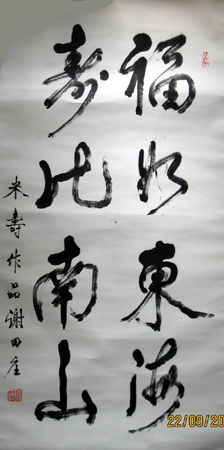 福如東海
壽比南山
米壽作品謝田庄
22/09/20